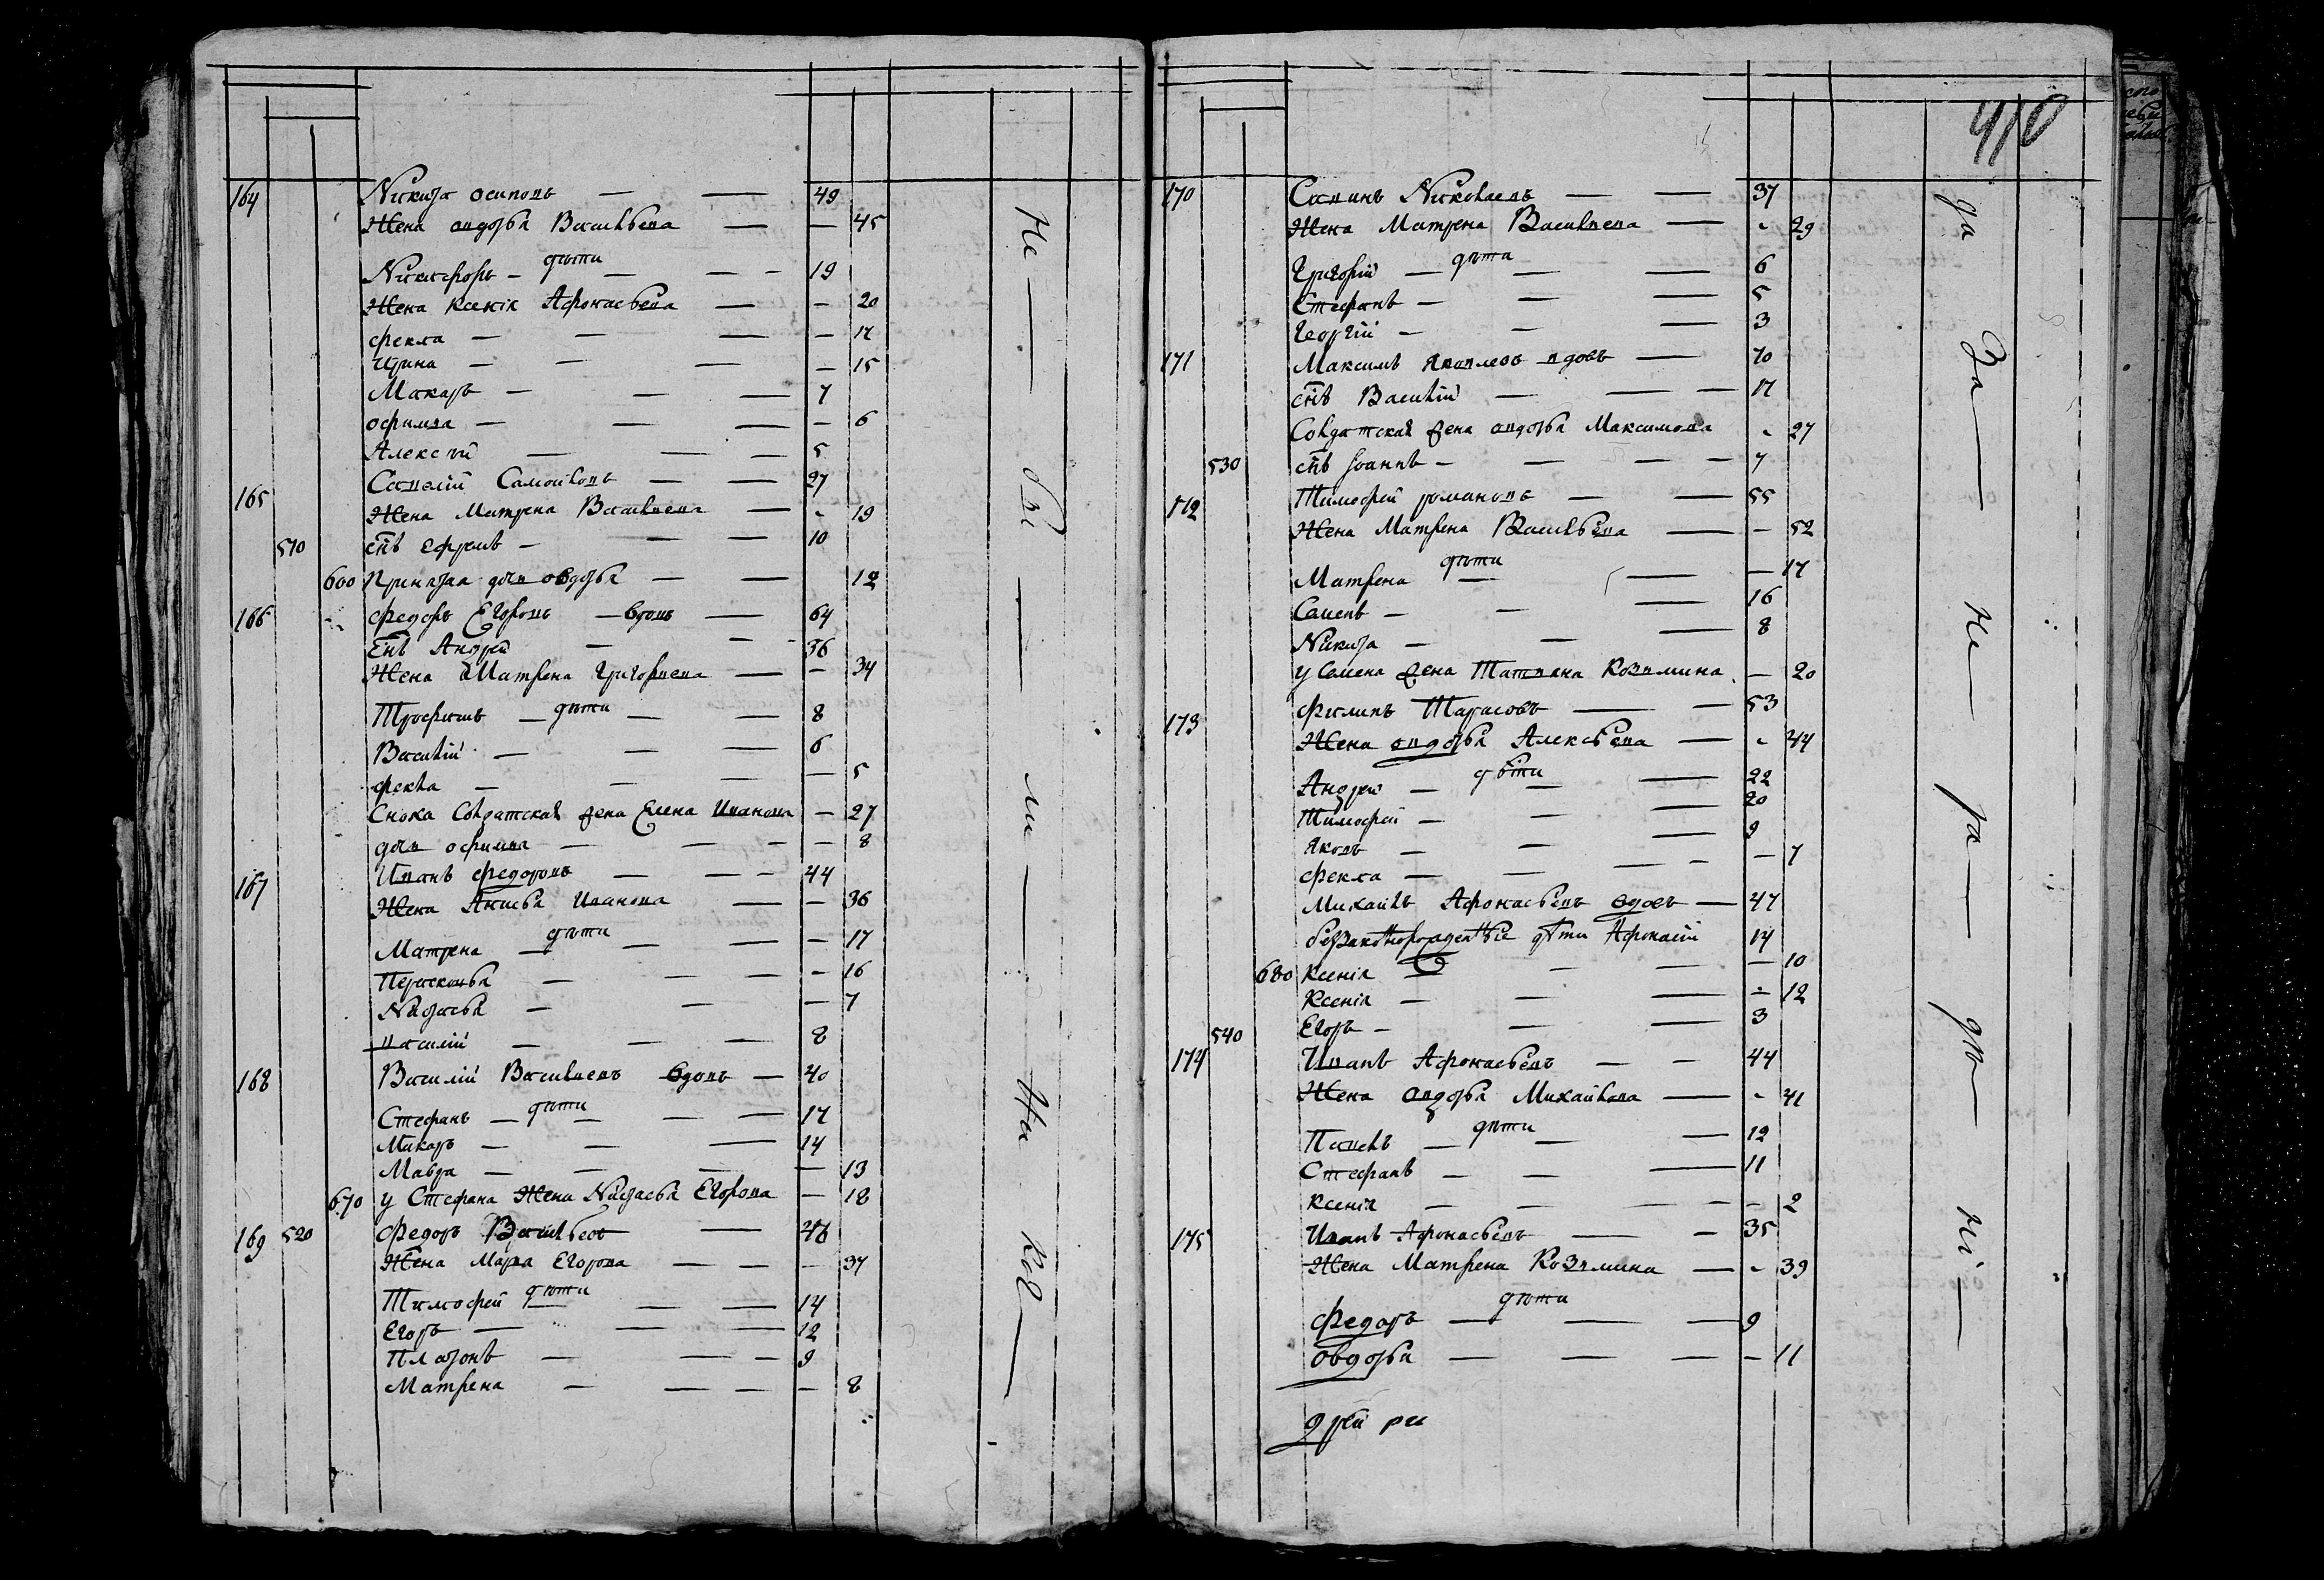 164 Никита осиповъ — — 49
Жена авдотья Васильева — — 45
дѣти
Никифоръ — — — 19
Жена Ксенія Афонасьева — — 20
фекла — — — — 17
Ирина — — — 15
Макаръ — — — 7
офимья — — — — 6
Алексѣй — — — 5
165 Савелій Самойловъ — — 27
Жена Матрена Васильева — - 19
510 снъ ефремъ — — — 10
600 Принятая дочь овдотья — — 12
166 федоръ Егоровъ — вдовъ — 64
снъ Андрей — — - 36
Жена Матрена Григорьева — — 34
дѣти
Трофимъ — — — 8
Василій — — — 6
фекла — — — — 5
Сноха Солдатская жена Елена Иванова — 27
дочь офимья — — - — 8
167 Иванъ федоровъ — — - 44
Жена Анисья Иванова — — 36
дѣти
Матрена — — — — 17
Парасковья — — — - 16
Настасья — — — 7
василій — — — 8
168 Василій Васильевъ вдовъ — 40
дѣти
Стефанъ — — — — 17
Макаръ — — — 14
Мавра — — — — 13
670 у Стефана Жена Настасья Егорова — 18
169 520 Федоръ Васильевъ — 46
Жена Марья Егорова — — — 37
дѣти
Тимофей — — — 14
Егоръ — — — 12
Платонъ — — — 9
Матрена — — — — 8
Не — бы — ли — На
410
170 Савинъ Николаевъ — — 37
Жена Матрена Васильева — - 29
дѣти
Григорій — — — 6
Стефанъ — — — 5
Георгій — — — 3
171 Максимъ Яковлевъ вдовъ — 70
снъ Василій — — — 17
Солдатская жена авдотья Максимова - 27
530 снъ Іоаннъ — — — — 7
172 Тимофей романовъ — — 55
Жена Матрена Васильева — — 52
дѣти
Матрена — — — 17
Семенъ — — — 16
Никита — — — 8
у Семена жена Татьяна Козьмина — 20
173 филипъ Тарасовъ — — 53
Жена авдотья Алексѣева — - 44
дѣти
Андрей — — — 22
Тимофей — — — 20
Яковъ — — — 9
фекла — — — - — 7
Михаилъ Афонасьевъ вдовъ — 47
безаконорожденныѣ дѣти Афонасій 14
680 Ксенія — — — — 10
Ксенія — — — - 12
540 Егоръ — — — 3
174 Иванъ Афонасьевъ — — 44
Жена авдотья Михайлова — - 41
дѣти
Павелъ — — — 12
Стефанъ — — — 11
Ксенія — — — - — 2
175 Иванъ Афонасьевъ — — 35
Жена Матрена Козьмина — - 39
дѣти
Федоръ — — — 9
овдотья — — — — 11
да За — не — ра — дѣ — ні —